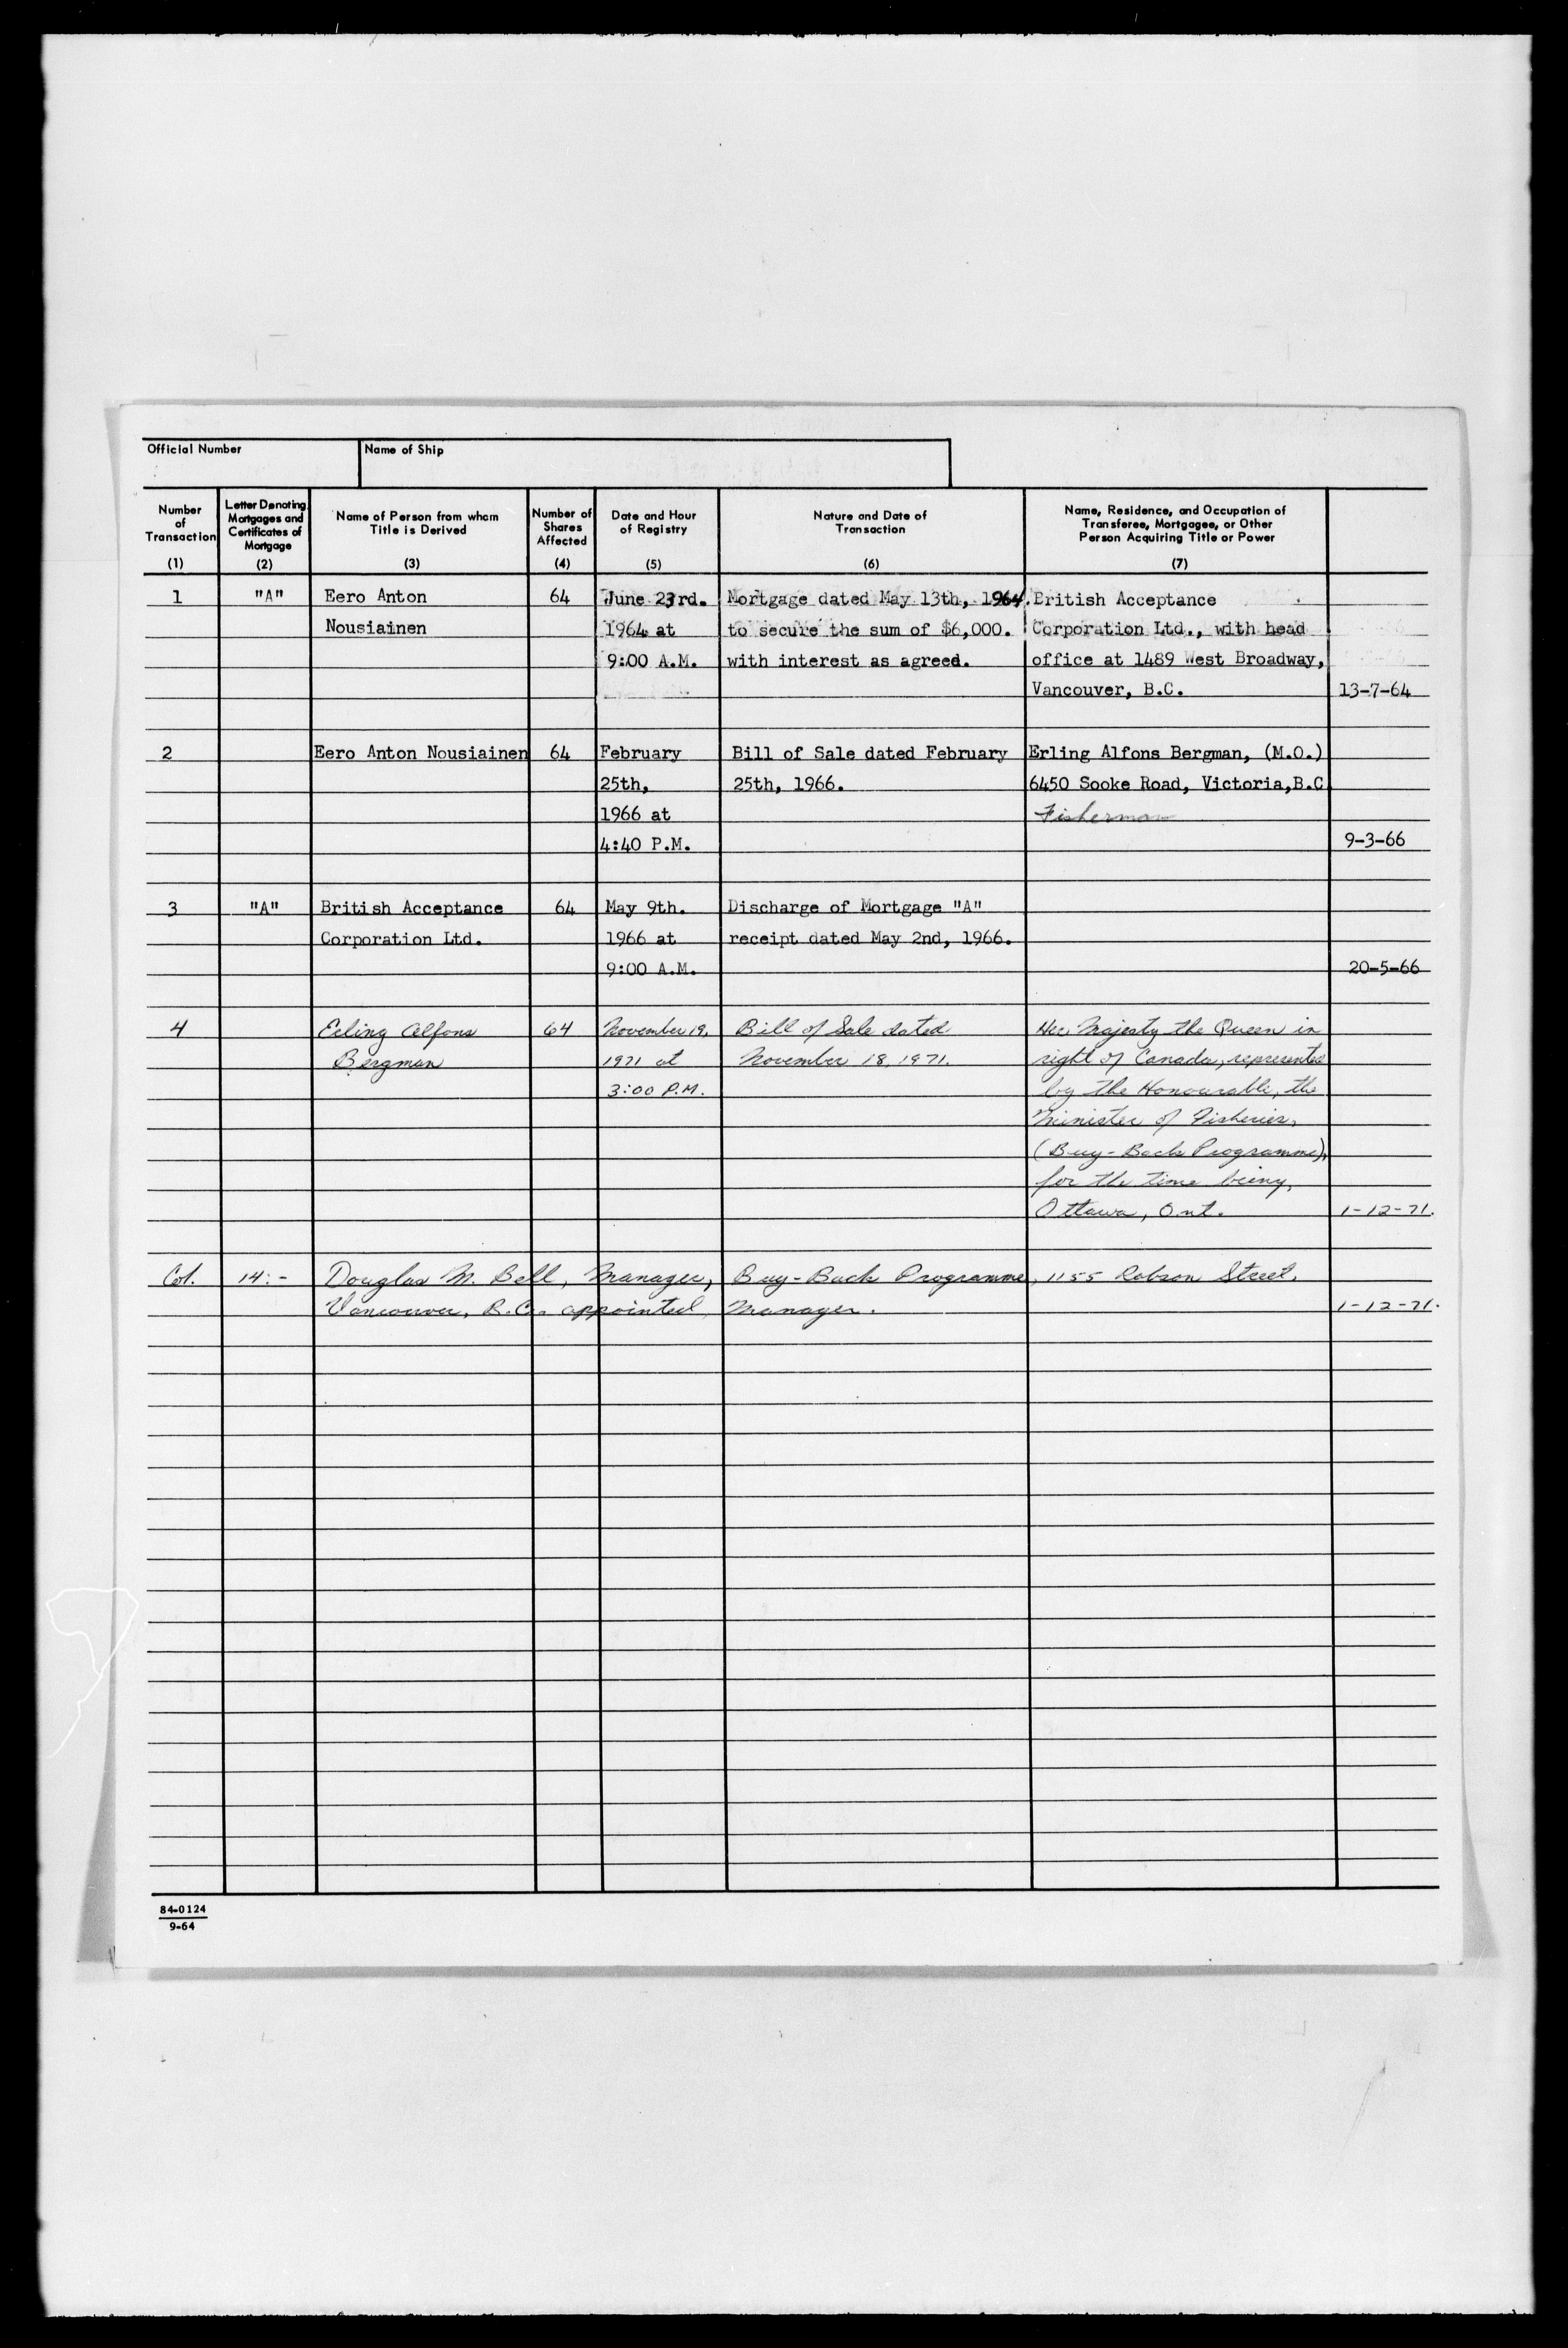 Official Number
Name of Ship
Number of Transaction (1)
Letter Denoting Mortgages and Certificates of Mortgage (2)
Name of Person from whom Title is Derived (3)
Number of Shares Affected (4)
Date and Hour of Registry (5)
Nature and Date of Transaction (6)
Name, Residence, and Occupation of Transferee, Mortgagee, or Other Person Acquiring Title or Power (7)
1 "A" Eero Anton 64 June 23rd. Mortgage dated May 13th, 1964. British Acceptance
Nousiainen 1964 at to secure the sum of $6,000. Corporation Ltd., with head
9:00 A.M. with interest as agreed. office at 1489 West Broadway,
Vancouver, B.C. 13-7-64
2 Eero Anton Nousiainen 64 February Bill of Sale dated February Erling Alfons Bergman, (M.O.)
25th, 25th, 1966. 6450 Sooke Road, Victoria,B.C
1966 at Fisherman
4:40 P.M. 9-3-66
3 "A" British Acceptance 64 May 9th. Discharge of Mortgage "A"
Corporation Ltd. 1966 at receipt dated May 2nd, 1966.
9:00 A.M. 20-5-66
4 Erling Alfons 64 November 19, Bill of Sale dated Her Majesty the Queen in
Bergman 1971 at November 18, 1971. right of Canada, represented
3:00 P.M. by the Honourable, the
Minister of Fisheries,
(Buy-Back Programme),
for the time being,
Ottawa, Ont. 1-12-71.
Col. 14:- Douglas M. Bell, Manager, Buy-Back Programme, 1155 Robson Street,
Vancouver, B.C. appointed Manager. 1-12-71.
84-0124
9-64